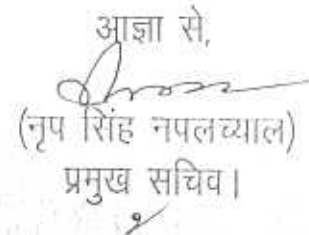 आज्ञा से,
(नृप सिंह नपलच्याल)
प्रमुख सचिव।